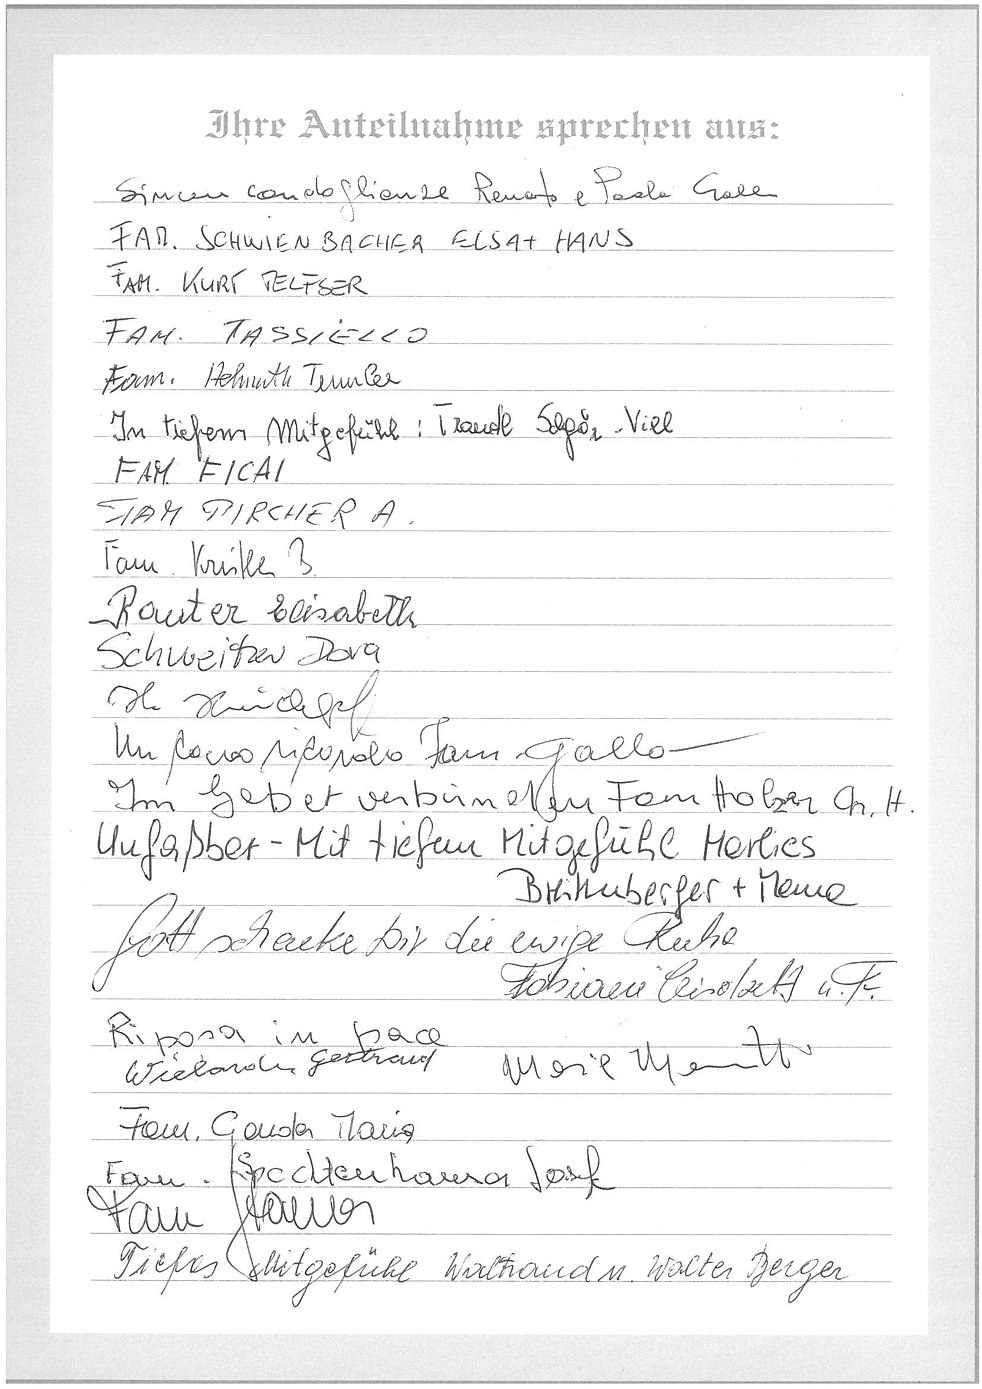 Ihre Anteilnahme sprechen aus:
Sincere condoglianze Renato e Paola
FAM. SCHWIENBACHER ELSA + HANS
FAM. KURT TELFSER
FAM. TASSIELLO
Fam. Helmuth
In tiefem Mitgefühl: Traudl
FAM. FICAI
FAM PIRCHER A.
Fam.
Rauter Elisabeth
Schweitzer Dora
Un ricordo Fam. Gallo
Im Gebet verbunden Fam Holzer Ch. H.
Unfaßbar - Mit tiefem Mitgefühl Marlies
Breitenberger + Mama
Gott schenke Dir die ewige Ruhe
Fabiani Elisabeth u. F.
Riposa in pace
Wielander Gertraud
Fam. Maria
Fam. Spechtenhauser Josef
Fam
Tiefes Mitgefühl Waltraud u. Walter Berger